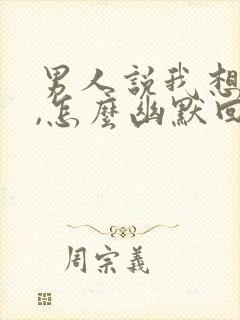 男人説我想
,怎麼幽默回
周宗義